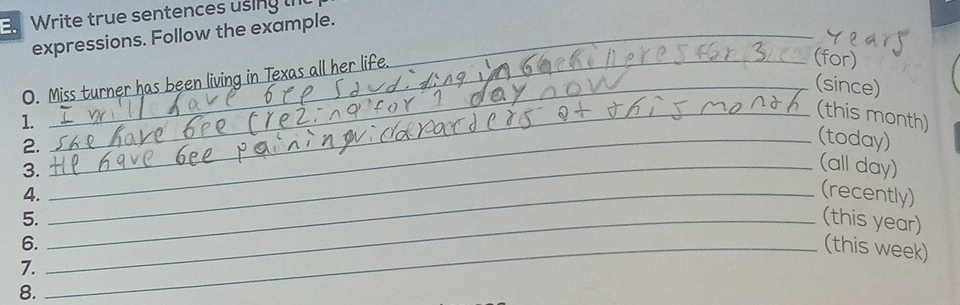 E. Write true sentences using the
expressions. Follow the example.
0. Miss turner has been living in Texas all her life.
years
1. I will have bee in for 3 (for)
2. she have bee for 1 day now (since)
3. He have bee at this month (this month)
4. (today)
5. (all day)
6. (recently)
7. (this year)
8. (this week)